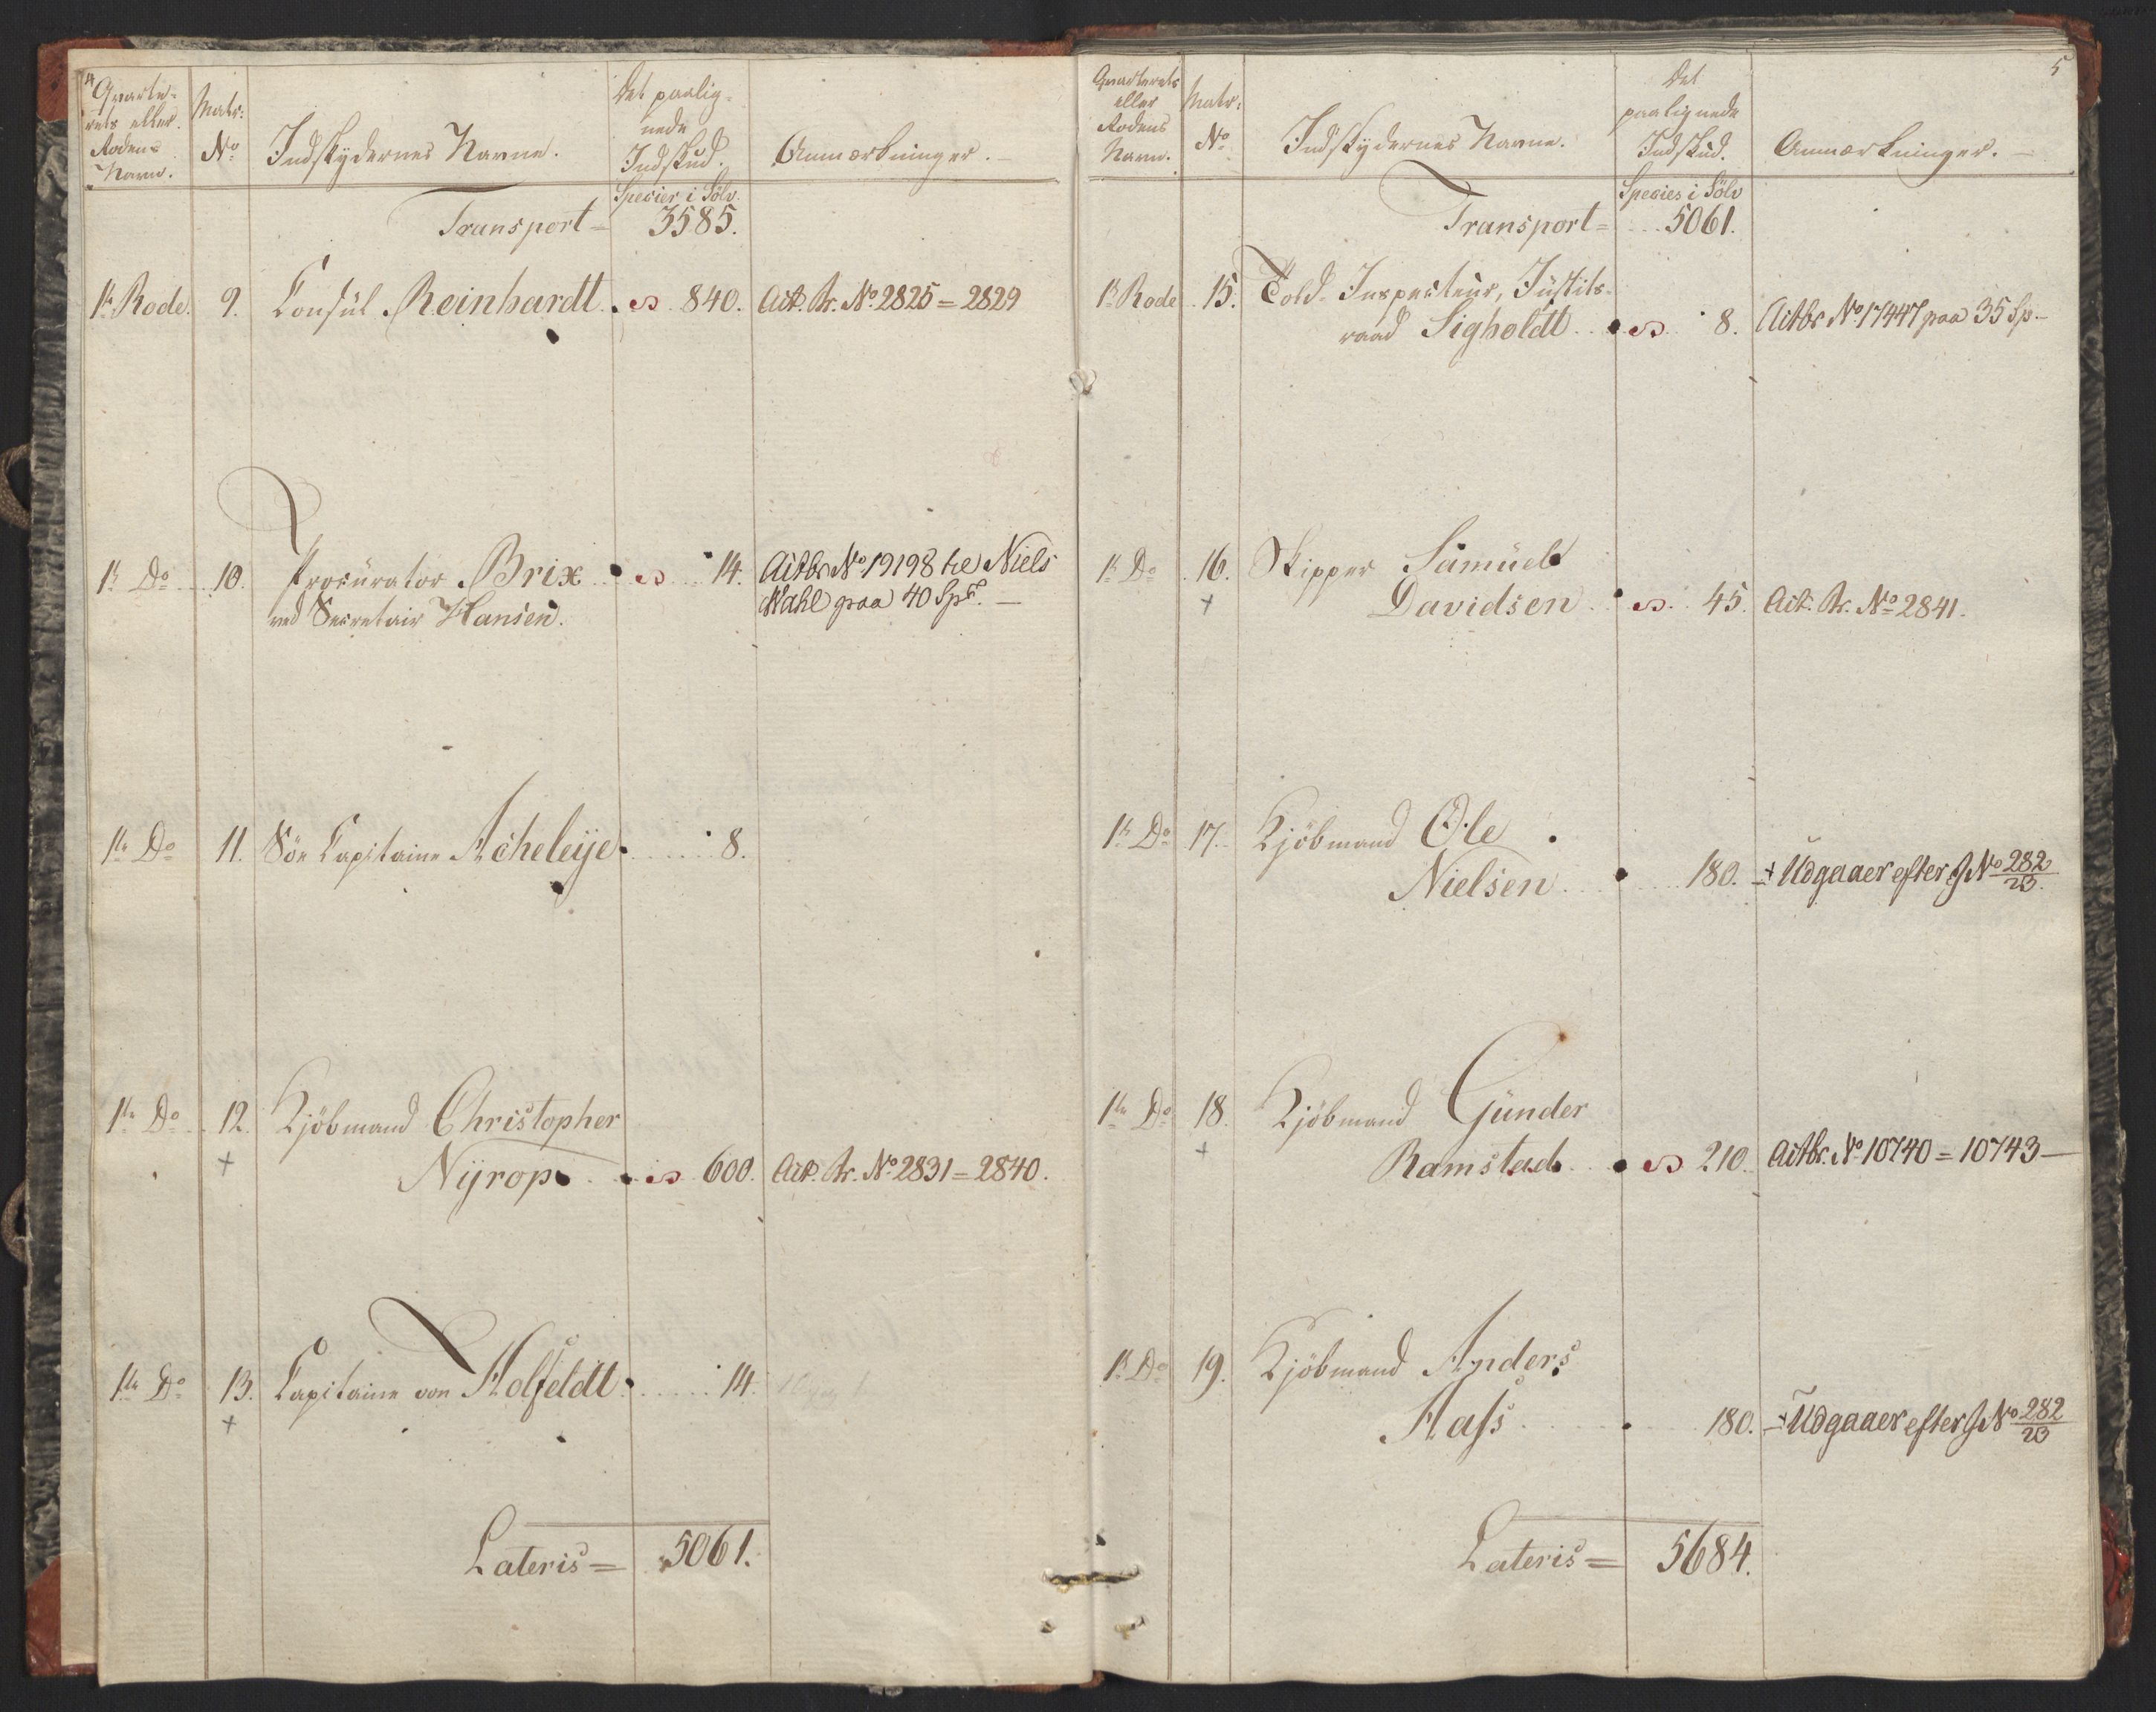 4
Qvarte-
rets eller
Rodens
Navn.
Matr:
No
Indskydernes Navne.
Det paalig-
nede
Indskud.
Anmærkninger.
Species i Sölv.
Transport = 3585.
1te Rode. 9. Consül Reinhardt. 840. Act. Br. No 2825 = 2829
1te Do 10. Procürator Brix 14. Actbr No 19198 til Niels
ved Secretair Hansen. Wahl paa 40 Sps. —
1te Do 11. Söe Capitaine Acheleÿe 8.
1te Do 12. Kjöbmand Christopher
+ Nÿrop. 600. Act. Br. No 2831 = 2840.
1te Do 13. Capitaine von Holfeldt. 14.
+
Lateris = 5061.
5
Qvarterets
eller
Rodens
Navn.
Matr:
No
Indskydernes Navne.
Det
paalignede
Indskud.
Anmærkninger. —
Species i Sölv
Transport = 5061.
1te Rode 15. Told-Inspecteur, Jüstits-
raad Sigholdt 8. Actbr No 17447 paa 35 Sp —
1te Do 16. Skipper Samüel
+ Davidsen 45. Act. Br. No 2841.
1te Do 17. Kjöbmand Ole
Nielsen 180. Udgaaer efter J No 282/23.
1te Do 18. Kjöbmand Günder
+ Ramstad 210. Actbr. No 10740 = 10743 —
1te Do 19. Kjöbmand Anders
Hass 180. Udgaaer efter J No 282/23
Lateris = 5684.